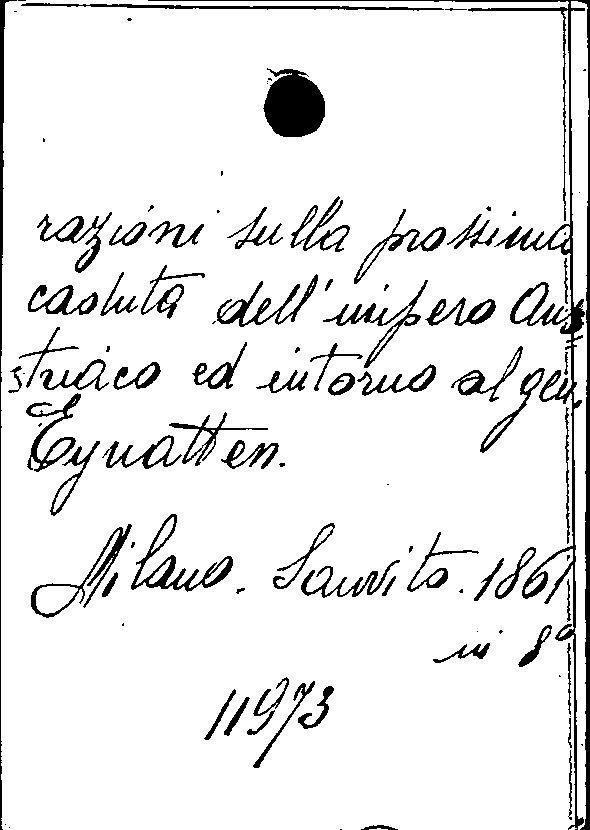 razioni sulla prossima
caduta dell'impero Aus
striaco ed intorno al gen.
Eynatten.
Milano. Sanvito. 1861
in 8º
11973